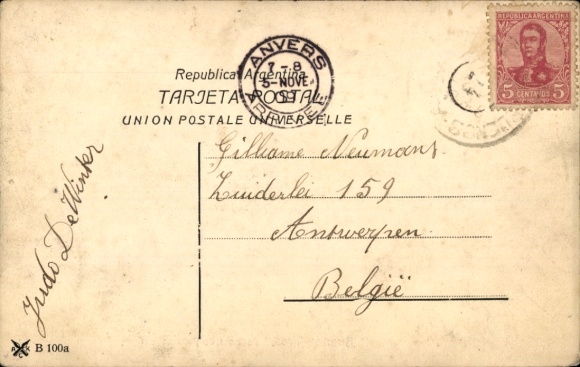 REPUBLICA ARGENTINA
5 CENTAVOS 5
ANVERS
7-8
5-NOVE
09
Republica Argentina
TARJETA POSTAL
UNION POSTALE UNIVERSELLE
Gilliame Neumans
Zuiderlei 159
Antwerpen
België
Judo De Winter
B 100a